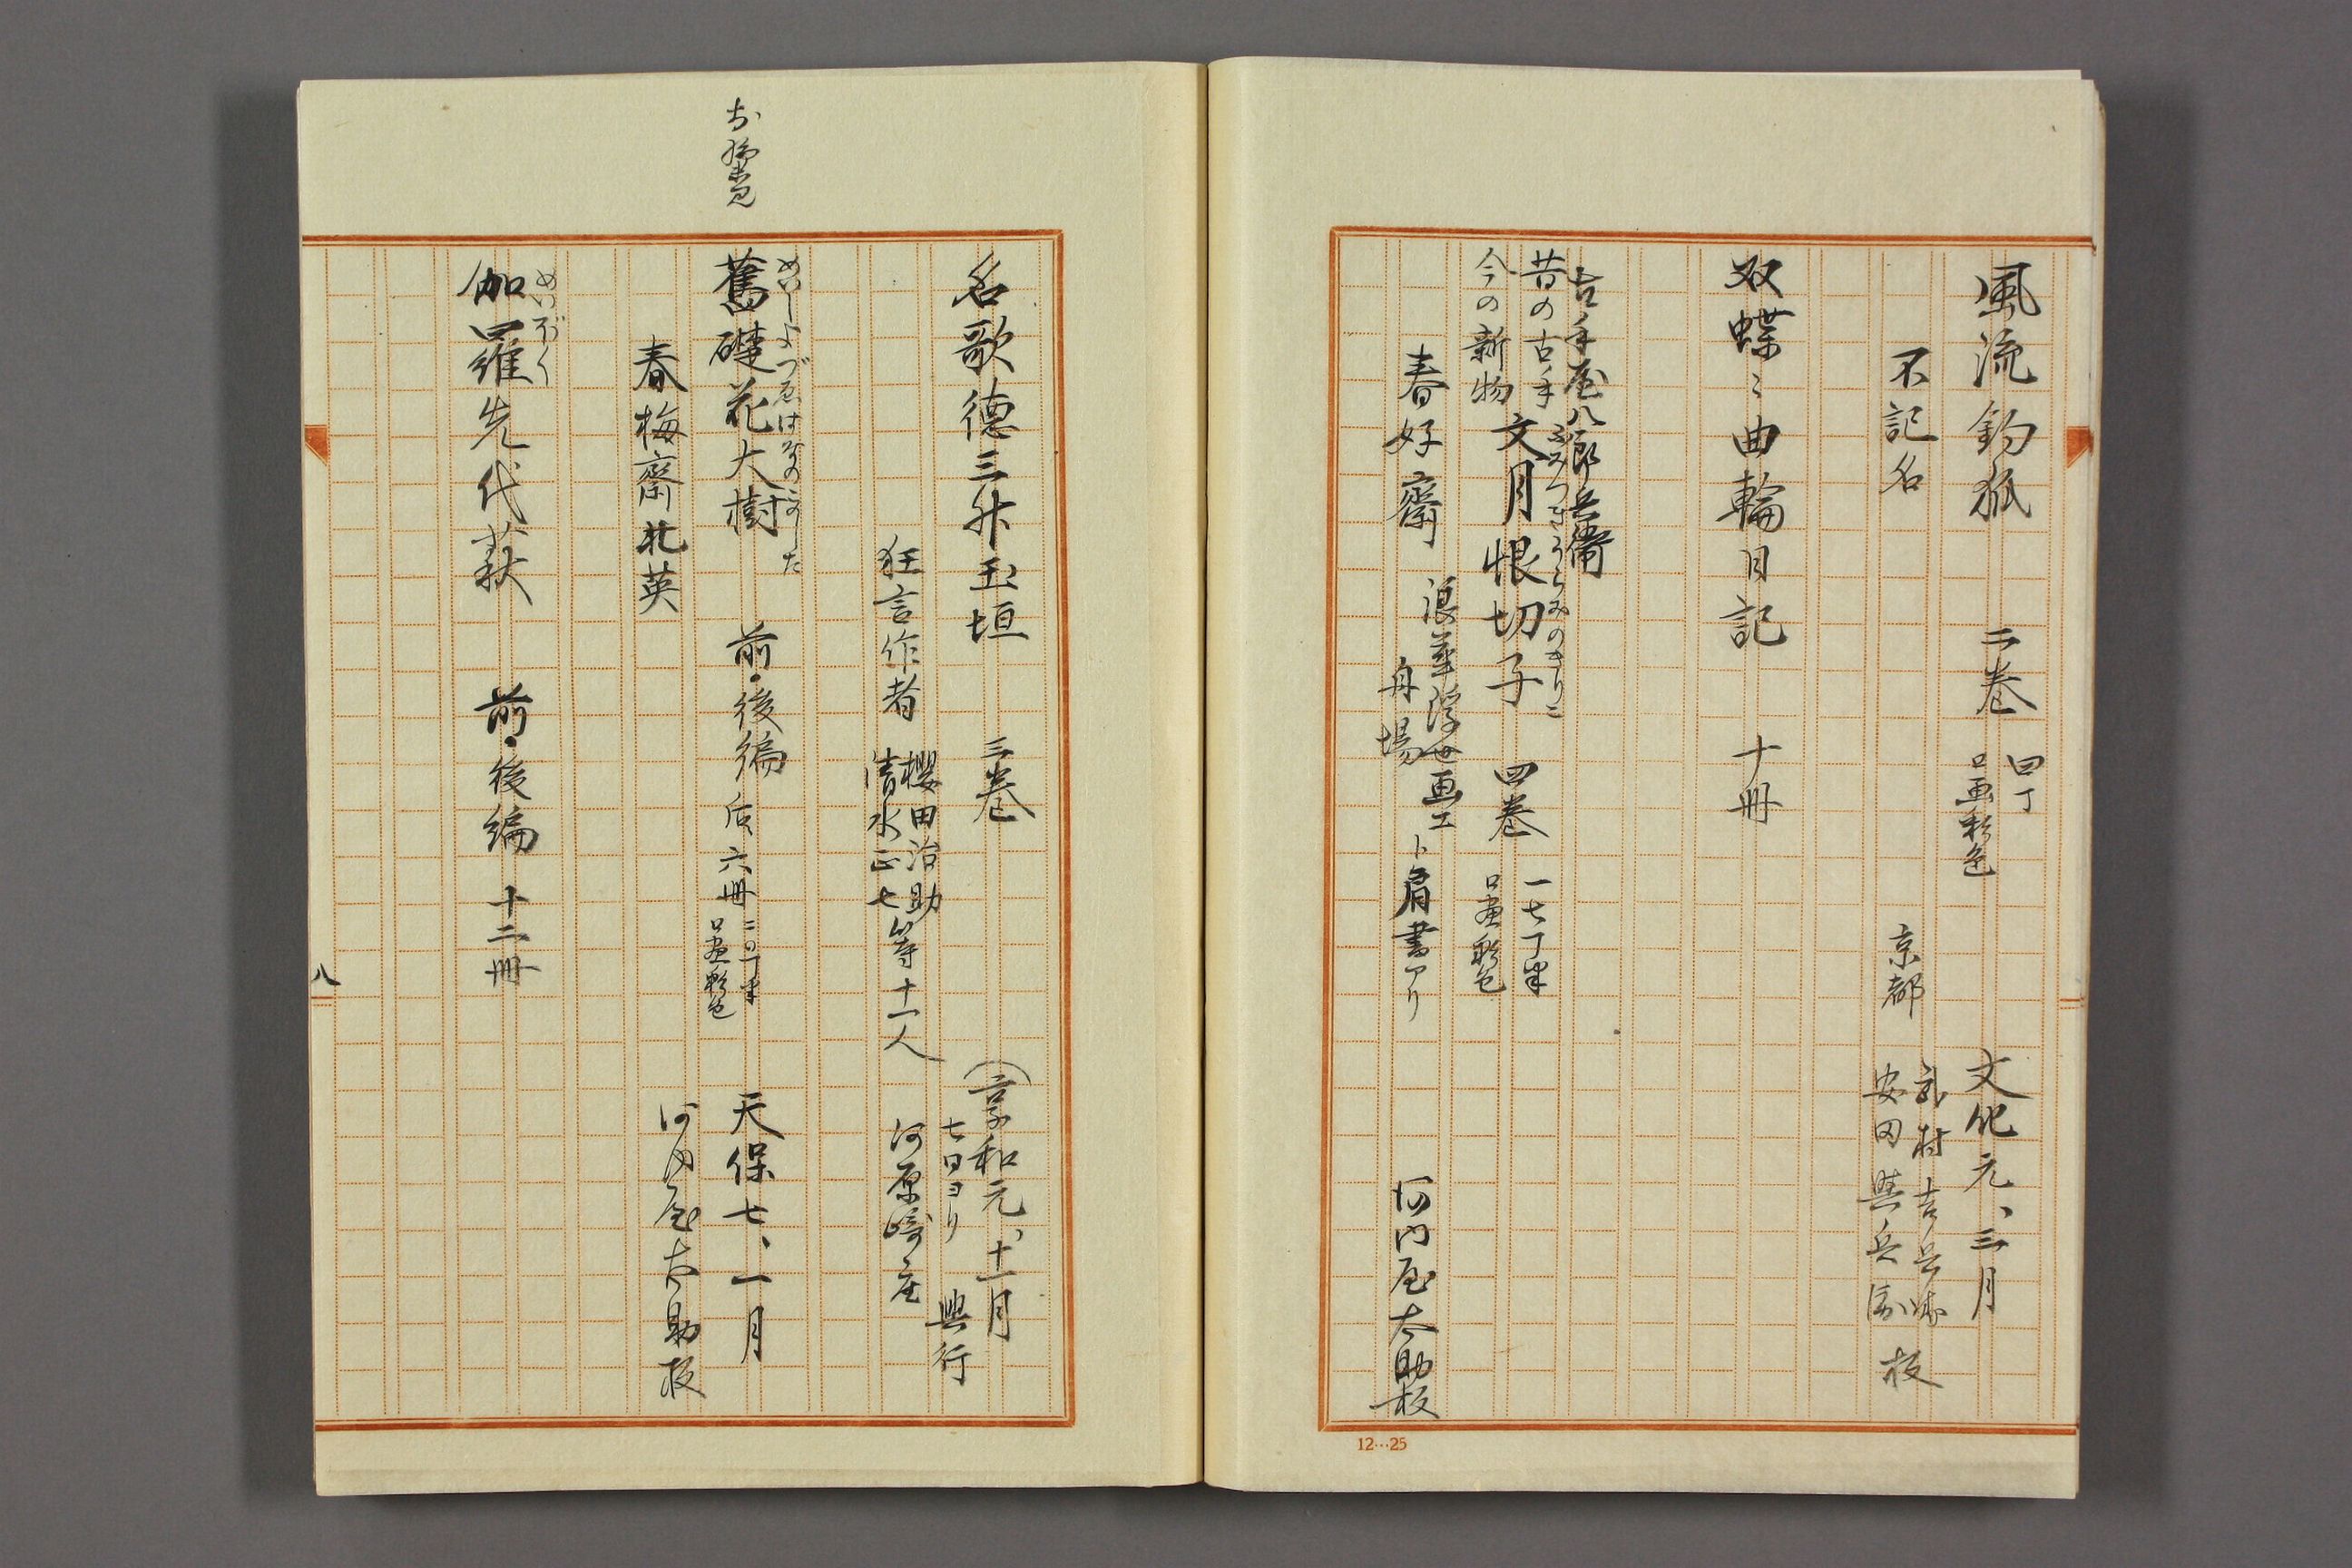 風流釣狐　二巻　四丁　口画彩色　文化元、三月
不記名　京都　武村吉兵衛　安田與兵衛　板
双蝶々曲輪日記　十冊
古手屋八郎兵衛
昔の古手
今の新物
文月恨切子　四巻　一七丁半　口画彩色
ふみつきうらみのきりこ
春好齋　浪華浮世画工ト肩書アリ　舟場　河内屋太助板
12…25
名歌徳三舛玉垣　三巻　(享和元、十一月
七日ヨリ　興行
狂言作者　櫻田治助　清水正七　等十一人　河原崎座
めいしよづゑはなのこのした
舊礎花大樹　前・後編　后六冊　二〇丁半　口画彩色　天保七、一月
春梅齋北英　河内屋太助板
めいぼく
伽羅先代萩　前・後編　十二冊
八